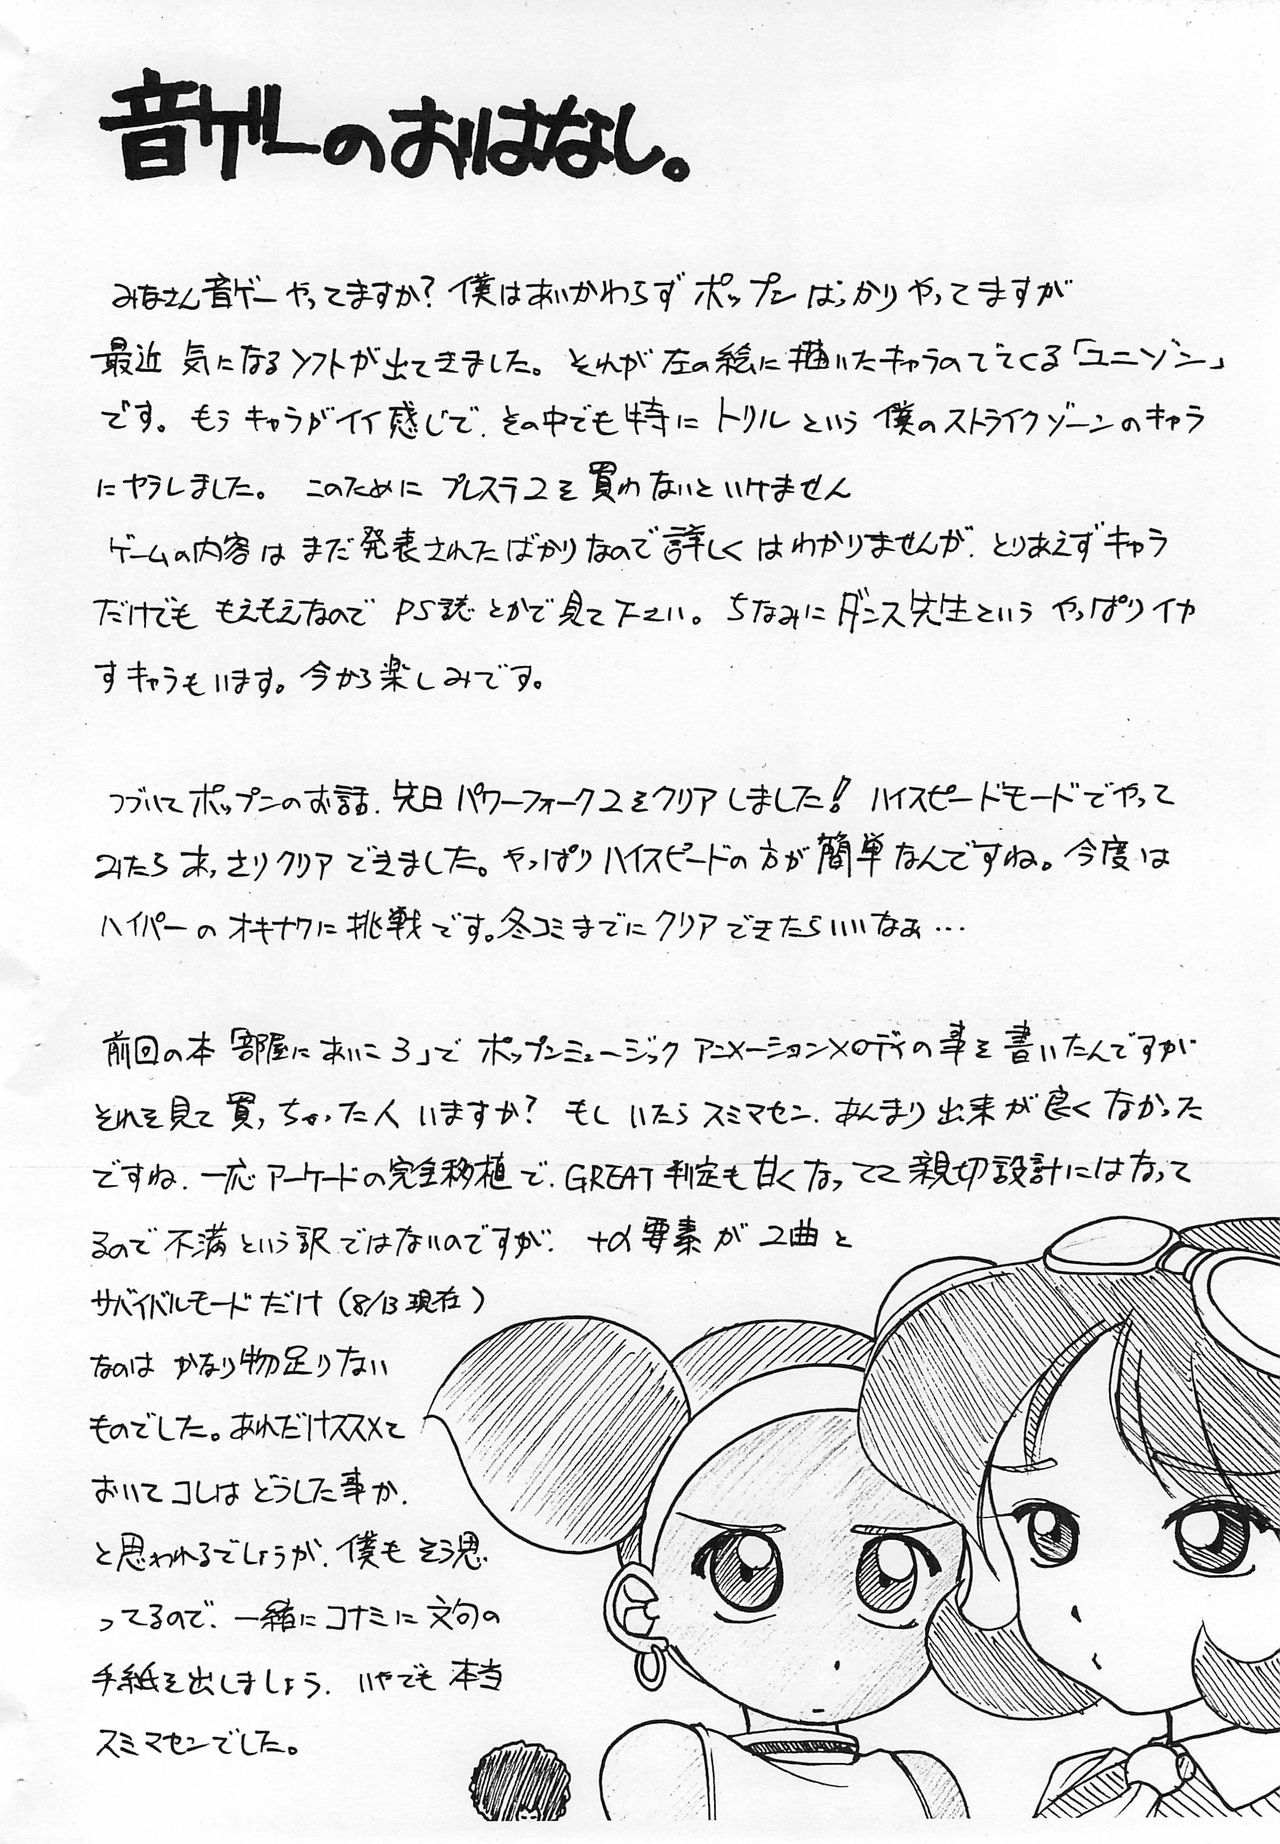 音ゲーのおはなし。
みなさん音ゲーやってますか?僕はあいかわらずポップンばっかりやってますが
最近 気になるソフトが出てきました。それが左の絵に描いたキャラのでてくる「ユニゾン」
です。もうキャラがイイ感じで、その中でも特にトリルという僕のストライクゾーンのキャラ
にヤラレました。 このためにプレステ2を買わないといけません
ゲームの内容はまだ発表されたばかりなので詳しくはわかりませんが、とりあえずキャラ
だけでももえもえなのでPS誌とかで見て下さい。ちなみにダンス先生というやっぱりイカ
すキャラもいます。今から楽しみです。
つづいてポップンのお話、先日パワーフォーク2をクリアしました!ハイスピードモードでやって
みたらあっさりクリアできました。やっぱりハイスピードの方が簡単なんですね。今度は
ハイパーのオキナワに挑戦です。冬コミまでにクリアできたらいいなぁ…
前回の本「部屋にあいころ」でポップンミュージックアニメーションメロディの事を書いたんですが
それを見て買っちゃった人いますか?もしいたらスミマセン、あんまり出来が良くなかった
ですね、一応アーケードの完全移植で、GREAT判定も甘くなってて親切設計にはなって
るので不満という訳ではないのですが、+α要素が2曲と
サバイバルモードだけ(8/13現在)
なのはかなり物足りない
ものでした。あれだけススメて
おいてコレはどうした事か、
と思われるでしょうが、僕もそう思
ってるので、一緒にコナミに文句の
手紙を出しましょう、いやでも本当
スミマセンでした。